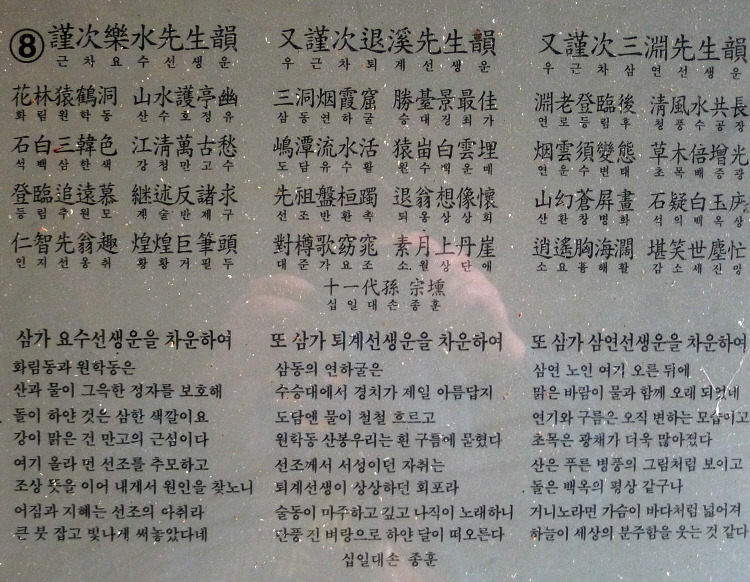 ⑧ 謹次樂水先生韻
근차요수선생운
花林猿鶴洞 山水護亭幽
화림원학동 산수호정유
石白三韓色 江淸萬古愁
석백삼한색 강청만고수
登臨追遠慕 継述反諸求
등림추원모 계술반제구
仁智先翁趣 煌煌巨筆頭
인지선옹취 황황거필두
又謹次退溪先生韻
우근차퇴계선생운
三洞烟霞窟 勝臺景最佳
삼동연하굴 승대경최가
嶋潭流水活 猿峀白雲埋
도담유수활 원수백운매
先祖盤桓躅 退翁想像懷
선조반환촉 퇴옹상상회
對樽歌窈窕 素月上丹崖
대준가요조 소월상단애
又謹次三淵先生韻
우근차삼연선생운
淵老登臨後 清風水共長
연로등림후 청풍수공장
烟雲須變態 草木倍增光
연운수변태 초목배증광
山幻蒼屛畫 石疑白玉床
산환창병화 석의백옥상
逍遙胸海濶 堪笑世塵忙
소요흉해활 감소세진망
十一代孫 宗壎
십일대손 종훈
삼가 요수선생운을 차운하여
화림동과 원학동은
산과 물이 그윽한 정자를 보호해
돌이 하얀 것은 삼한 색깔이요
강이 맑은 건 만고의 근심이다
여기 올라 먼 선조를 추모하고
조상 뜻을 이어 내게서 원인을 찾노니
어짐과 지혜는 선조의 아취라
큰 붓 잡고 빛나게 써놓았다네
또 삼가 퇴계선생운을 차운하여
삼동의 연하굴은
수승대에서 경치가 제일 아름답지
도담엔 물이 철철 흐르고
원학동 산봉우리는 흰 구름에 묻혔다
선조께서 서성이던 자취는
퇴계선생이 상상하던 회포라
술동이 마주하고 깊고 나직이 노래하니
단풍 긴 벼랑으로 하얀 달이 떠오른다
또 삼가 삼연선생운을 차운하여
삼연 노인 여기 오른 뒤에
맑은 바람이 물과 함께 오래 되었네
연기와 구름은 오직 변하는 모습이고
초목은 광채가 더욱 많아졌다
산은 푸른 병풍의 그림처럼 보이고
돌은 백옥의 평상 같구나
거니노라면 가슴이 바다처럼 넓어져
하늘이 세상의 분주함을 웃는 것 같다
십일대손 종훈